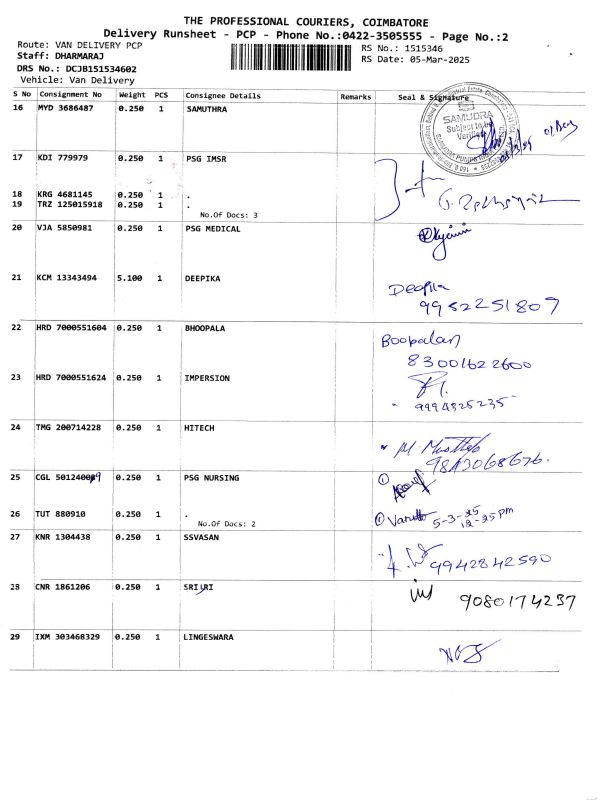 THE PROFESSIONAL COURIERS, COIMBATORE
Delivery Runsheet - PCP - Phone No.:0422-3505555 - Page No.:2
Route: VAN DELIVERY PCP
RS No.: 1515346
Staff: DHARMARAJ
RS Date: 05-Mar-2025
DRS No.: DCJB151534602
Vehicle: Van Delivery
S No Consignment No Weight PCS Consignee Details Remarks Seal & Signature
16 MYD 3686487 0.250 1 SAMUTHRA
SAMUDRA
Subject to
17 KDI 779979 0.250 1 PSG IMSR
18 KRG 4681145 0.250 1 .
19 TRZ 125015918 0.250 1 .
No.Of Docs: 3
20 VJA 5850981 0.250 1 PSG MEDICAL
21 KCM 13343494 5.100 1 DEEPIKA
Deepika
9952251807
22 HRD 7000551604 0.250 1 BHOOPALA
Boopalan
83001622600
23 HRD 7000551624 0.250 1 IMPERSION
9994825235
24 TMG 200714228 0.250 1 HITECH
25 CGL 501240089 0.250 1 PSG NURSING
26 TUT 880910 0.250 1 .
5-3-25
12-25pm
No.Of Docs: 2
27 KNR 1304438 0.250 1 SSVASAN
9942842590
28 CNR 1861206 0.250 1 SRI URI
9080174237
29 IXM 303468329 0.250 1 LINGESWARA